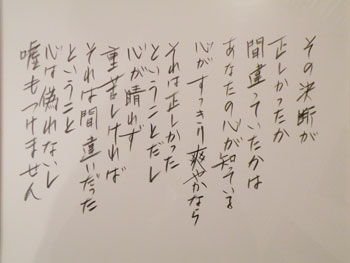 その決断が
正しかったか
間違っていたかは
あなたの心が知っている
心がすっきり爽やかなら
それは正しかった
ということだし
心が晴れず
重苦しければ
それは間違いだった
ということ
心は偽れないし
嘘もつけません